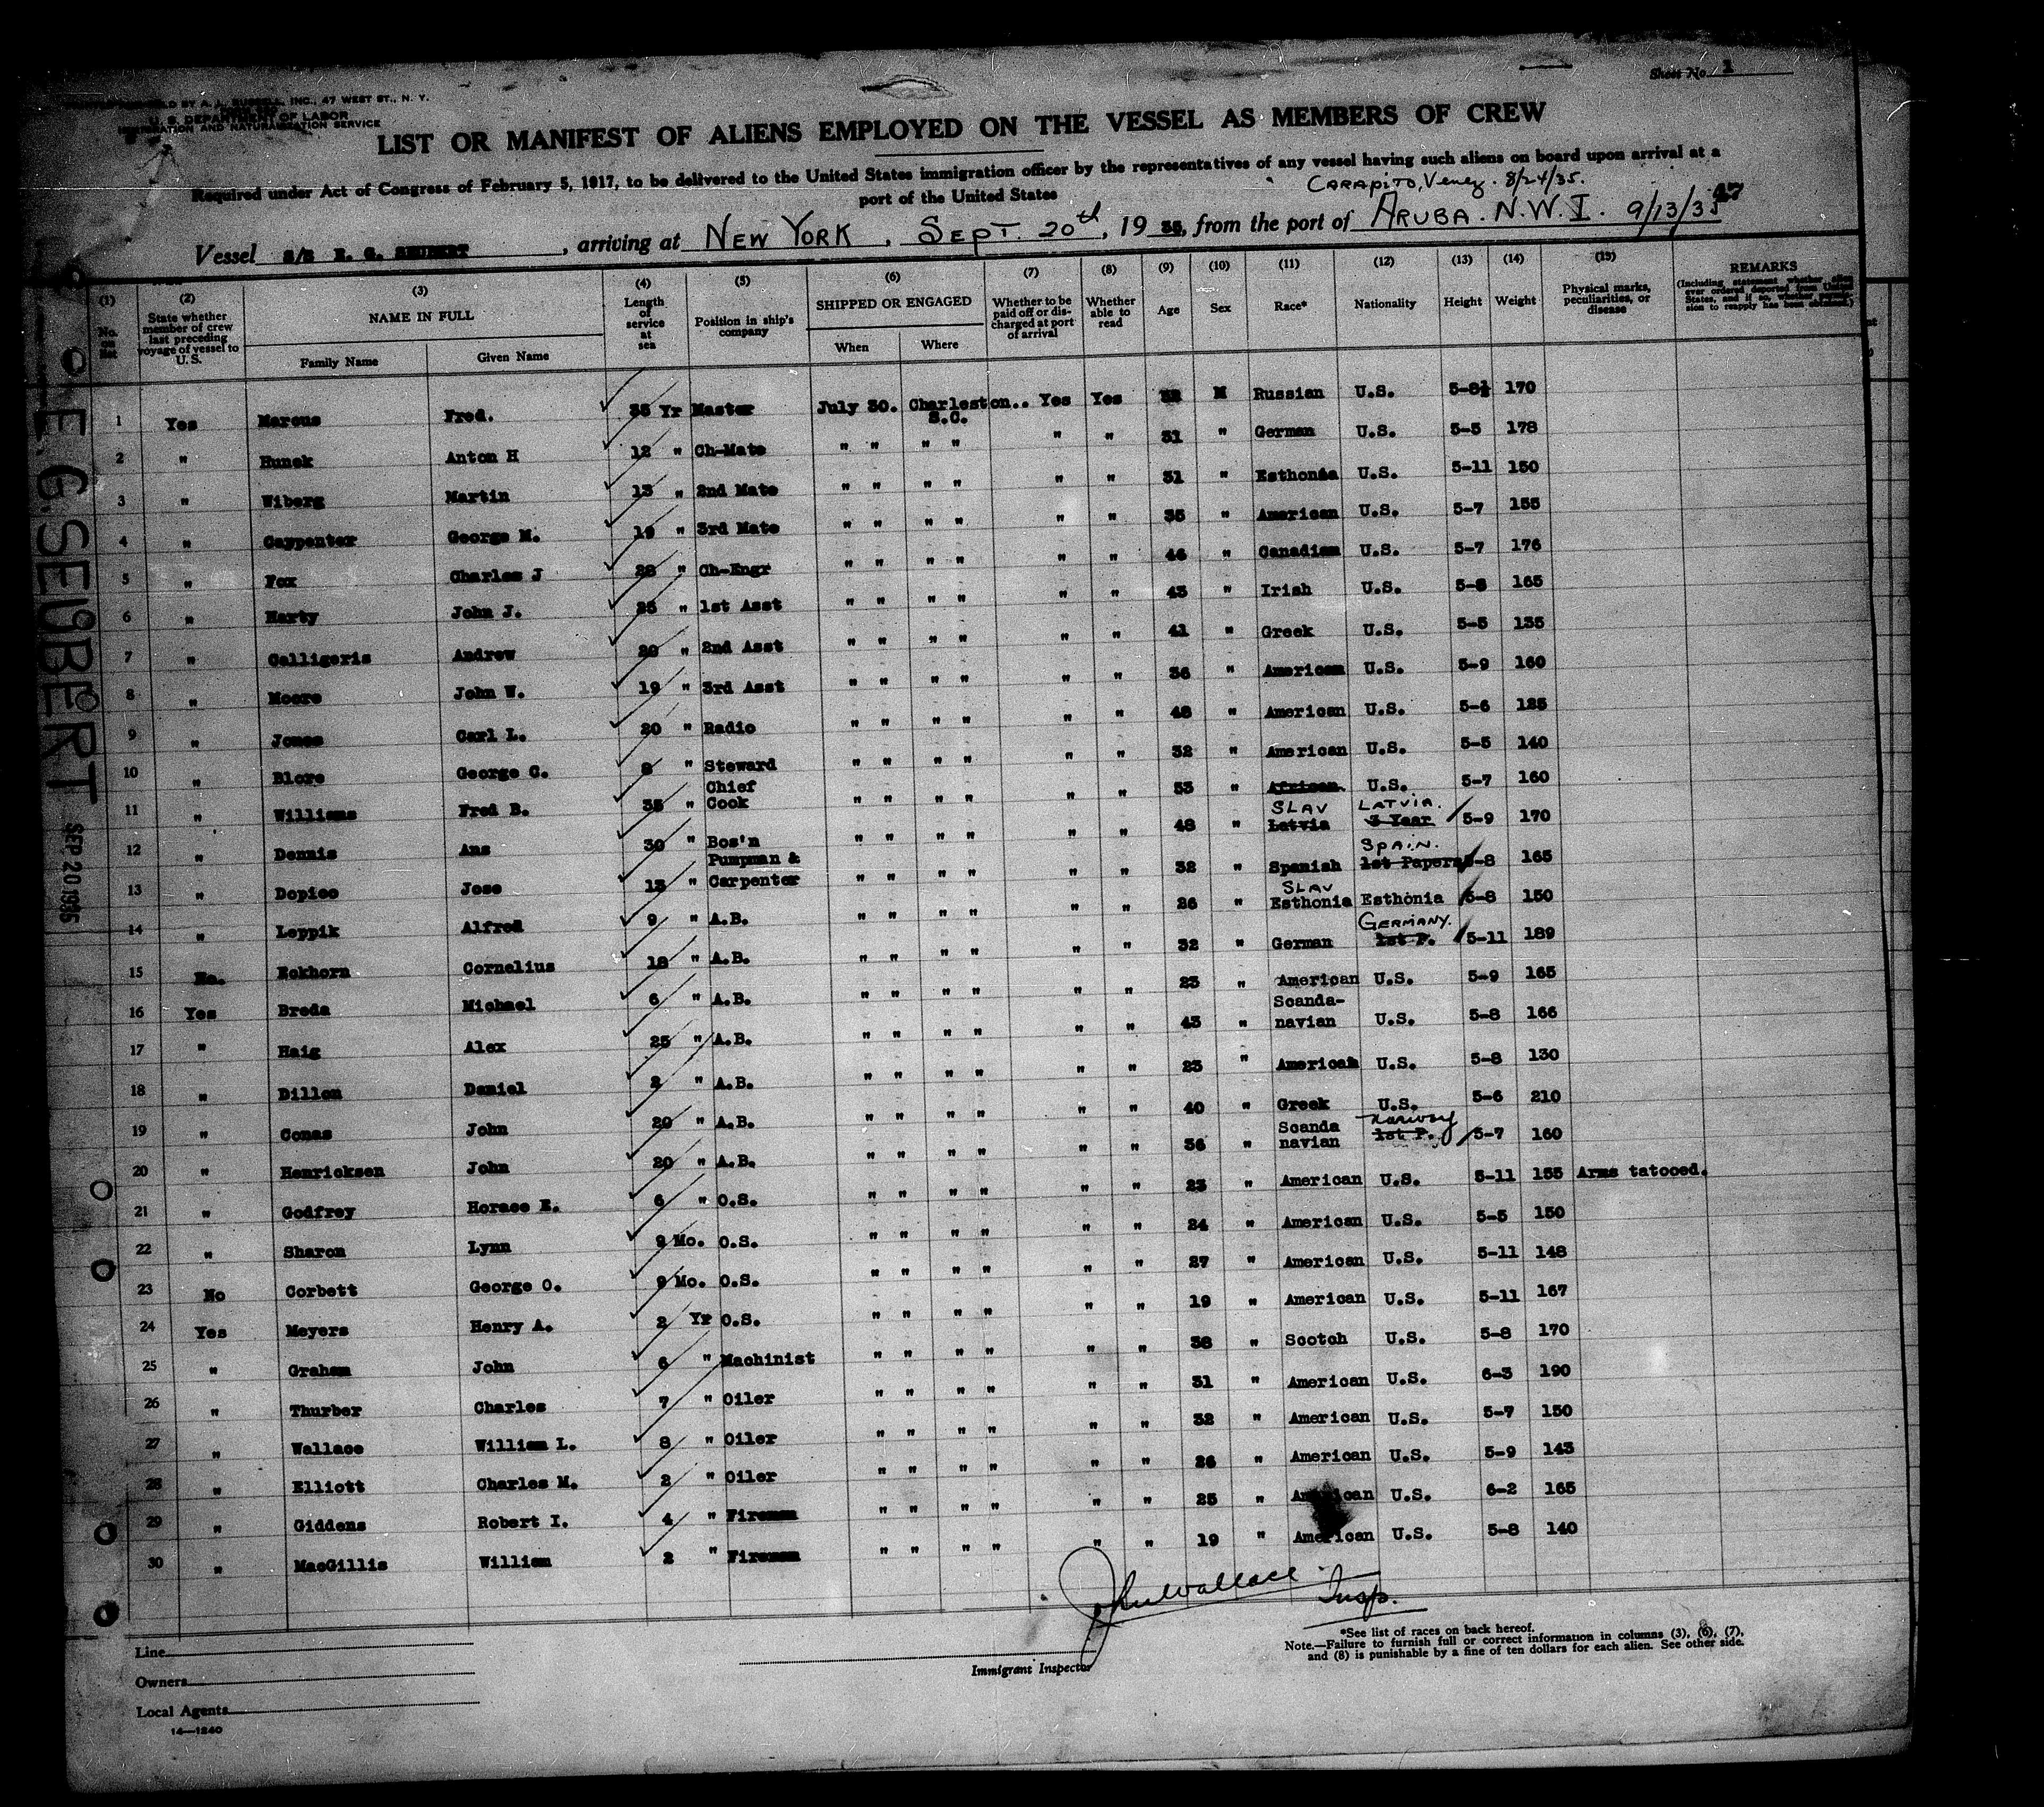 Sheet No. 1
U. S. DEPARTMENT OF LABOR
IMMIGRATION AND NATURALIZATION SERVICE
LIST OR MANIFEST OF ALIENS EMPLOYED ON THE VESSEL AS MEMBERS OF CREW
Required under Act of Congress of February 5, 1917, to be delivered to the United States immigration officer by the representatives of any vessel having such aliens on board upon arrival at a
port of the United States
CARAPITO, Venez. 8/24/35.
47
Vessel S/S E. G. SEUBERT, arriving at NEW YORK, SEPT. 20th, 19 35, from the port of ARUBA. N.W.I. 9/13/35
(1) (2) (3) (4) (5) (6) (7) (8) (9) (10) (11) (12) (13) (14) (15)
No. on list | State whether member of crew last preceding voyage of vessel to U. S. | NAME IN FULL | Length of service at sea | Position in ship's company | SHIPPED OR ENGAGED | Whether to be paid off or discharged at port of arrival | Whether able to read | Age | Sex | Race* | Nationality | Height | Weight | Physical marks, peculiarities, or disease | REMARKS (Including statement whether alien ever ordered deported from United States, and if so, whether permission to reapply has been obtained)
Family Name | Given Name | When | Where
1 Yes Marcus Fred. 35 Yr Master July 30. Charleston.. S.C. Yes Yes M Russian U.S. 5-8½ 170
2 " Hunek Anton H 12 " Ch-Mate " " " " " " 31 " German U.S. 5-5 178
3 " Wiberg Martin 13 " 2nd Mate " " " " " " 31 " Esthonia U.S. 5-11 150
4 " Carpenter George M. 19 " 3rd Mate " " " " " " 35 " American U.S. 5-7 155
5 " Fox Charles J 28 " Ch-Engr " " " " " " 46 " Canadian U.S. 5-7 176
6 " Harty John J. 25 " 1st Asst " " " " " " 43 " Irish U.S. 5-8 165
7 " Calligeris Andrew 20 " 2nd Asst " " " " " " 41 " Greek U.S. 5-5 135
8 " Moore John W. 19 " 3rd Asst " " " " " " 36 " American U.S. 5-9 160
9 " Jones Carl L. 20 " Radio " " " " " " 48 " American U.S. 5-6 125
10 " Blore George C. 8 " Steward " " " " " " 32 " American U.S. 5-5 140
11 " Williams Fred B. 35 " Chief Cook " " " " " " 53 " African. U.S. 5-7 160
12 " Dennis Ans 30 " Bos'n " " " " " " 48 " SLAV Latvia LATVIA. 3 Year 5-9 170
13 " Dopico Jose 13 " Pumpman & Carpenter " " " " " " 32 " Spanish SPAIN. 1st Papers 5-8 165
14 " Leppik Alfred 9 " A.B. " " " " " " 26 " SLAV Esthonia Esthonia 5-8 150
15 No. Eckhorn Cornelius 18 " A.B. " " " " " " 32 " German GERMANY. 1st P. 5-11 189
16 Yes Breda Michael 6 " A.B. " " " " " " 23 " American U.S. 5-9 165
17 " Haig Alex 25 " A.B. " " " " " " 43 " Scanda-navian U.S. 5-8 166
18 " Dillon Daniel 2 " A.B. " " " " " " 23 " American U.S. 5-8 130
19 " Conas John 20 " A.B. " " " " " " 40 " Greek U.S. 5-6 210
20 " Henricksen John 20 " A.B. " " " " " " 36 " Scanda navian Norway 1st P. 5-7 160
21 " Godfrey Horace E. 6 " O.S. " " " " " " 23 " American U.S. 5-11 155 Arms tatooed.
22 " Sharon Lynn 9 Mo. O.S. " " " " " " 24 " American U.S. 5-5 150
23 No Corbett George O. 9 Mo. O.S. " " " " " " 27 " American U.S. 5-11 148
24 Yes Meyers Henry A. 2 Yr O.S. " " " " " " 19 " American U.S. 5-11 167
25 " Graham John 6 " Machinist " " " " " " 38 " Scotch U.S. 5-8 170
26 " Thurber Charles 7 " Oiler " " " " " " 31 " American U.S. 6-3 190
27 " Wallace William L. 8 " Oiler " " " " " " 32 " American U.S. 5-7 150
28 " Elliott Charles M. 2 " Oiler " " " " " " 26 " American U.S. 5-9 143
29 " Giddens Robert I. 4 " Fireman " " " " " " 25 " American U.S. 6-2 165
30 " MacGillis William 2 " Fireman " " " " " " 19 " American U.S. 5-8 140
E. G. SEUBERT SEP 20 1935
John Wallace Insp.
Immigrant Inspector
Line
Owners
Local Agents
14—1240
*See list of races on back hereof.
Note.—Failure to furnish full or correct information in columns (3), (6), (7),
and (8) is punishable by a fine of ten dollars for each alien. See other side.